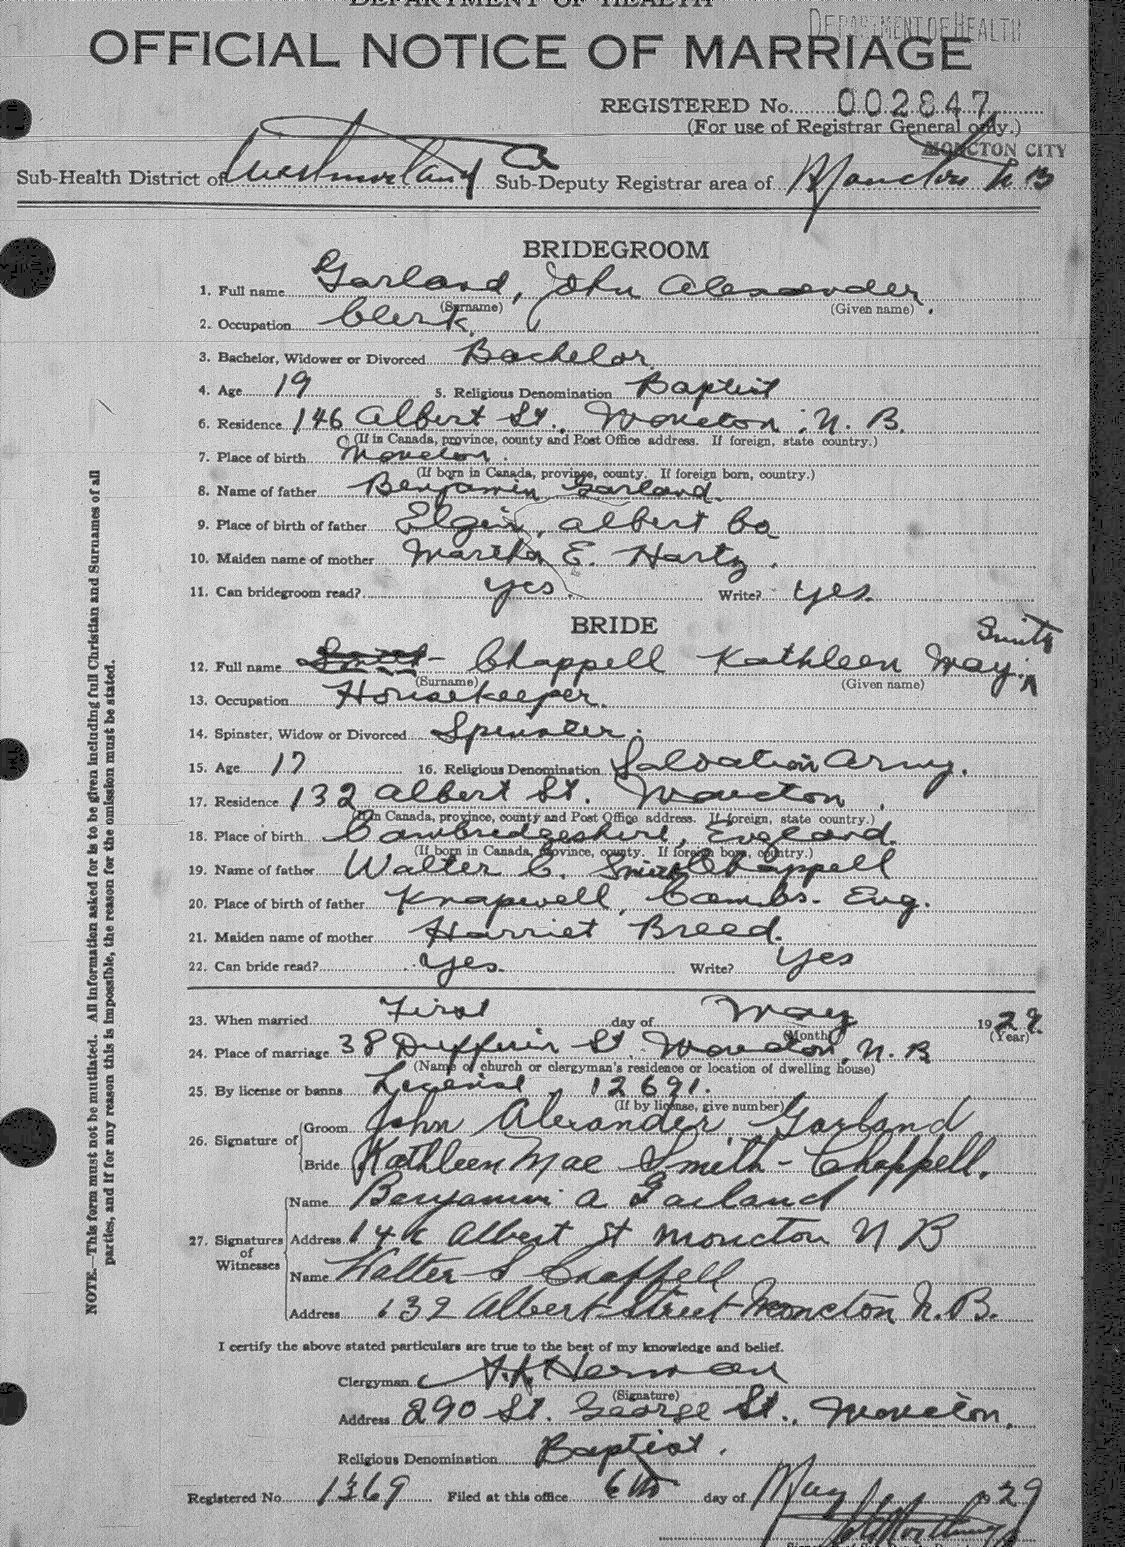 DEPARTMENT OF HEALTH
DEPARTMENT OF HEALTH
OFFICIAL NOTICE OF MARRIAGE
REGISTERED No. 002847
(For use of Registrar General only.)
MONCTON CITY
Sub-Health District of Westmorland Co Sub-Deputy Registrar area of Moncton N B
BRIDEGROOM
1. Full name Garland, John Alexander.
(Surname) (Given name)
2. Occupation Clerk.
3. Bachelor, Widower or Divorced Bachelor
4. Age 19 5. Religious Denomination Baptist
6. Residence 146 Albert St., Moncton, N. B.
(If in Canada, province, county and Post Office address. If foreign, state country.)
7. Place of birth Moncton.
(If born in Canada, province, county. If foreign born, country.)
8. Name of father Benjamin Garland.
9. Place of birth of father Elgin, Albert Co
10. Maiden name of mother Martha E. Hartz.
11. Can bridegroom read? yes. Write? yes.
BRIDE
Smith
12. Full name Smith- Chappell Kathleen May.
(Surname) (Given name)
13. Occupation Housekeeper.
14. Spinster, Widow or Divorced Spinster.
15. Age 17 16. Religious Denomination Salvation Army.
17. Residence 132 Albert St. Moncton.
(If in Canada, province, county and Post Office address. If foreign, state country.)
18. Place of birth Cambridgeshire, England.
(If born in Canada, province, county. If foreign born, country.)
19. Name of father Walter C. Smith Chappell
20. Place of birth of father Knapwell, Cambs. Eng.
21. Maiden name of mother Harriet Breed.
22. Can bride read? Yes. Write? Yes
23. When married First day of May 1929.
(Month) (Year)
24. Place of marriage 38 Dufferin St. Moncton, N. B
(Name of church or clergyman's residence or location of dwelling house)
25. By license or banns License, 12691.
(If by license, give number)
26. Signature of Groom John Alexander Garland
Bride Kathleen Mae Smith-Chappell.
27. Signatures of Witnesses
Name Benjamin A Garland
Address 146 Albert St Moncton N B
Name Walter S Chappell
Address 132 Albert Street Moncton N. B.
I certify the above stated particulars are true to the best of my knowledge and belief.
Clergyman Herman
(Signature)
Address 290 St. George St., Moncton.
Religious Denomination Baptist.
Registered No. 1369 Filed at this office 6th day of May 1929
NOTE.—This form must not be mutilated. All information asked for is to be given including full Christian and Surnames of all
parties, and if for any reason this is impossible, the reason for the omission must be stated.